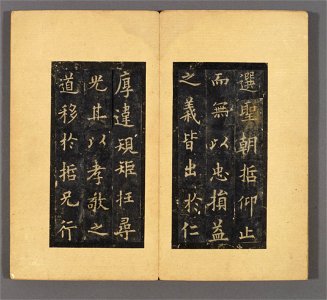 選聖朝振仰止
而無以忠損益
之義皆出於仁
厚違規矩枉尋
光其以孝敬之
道移於哲兄行